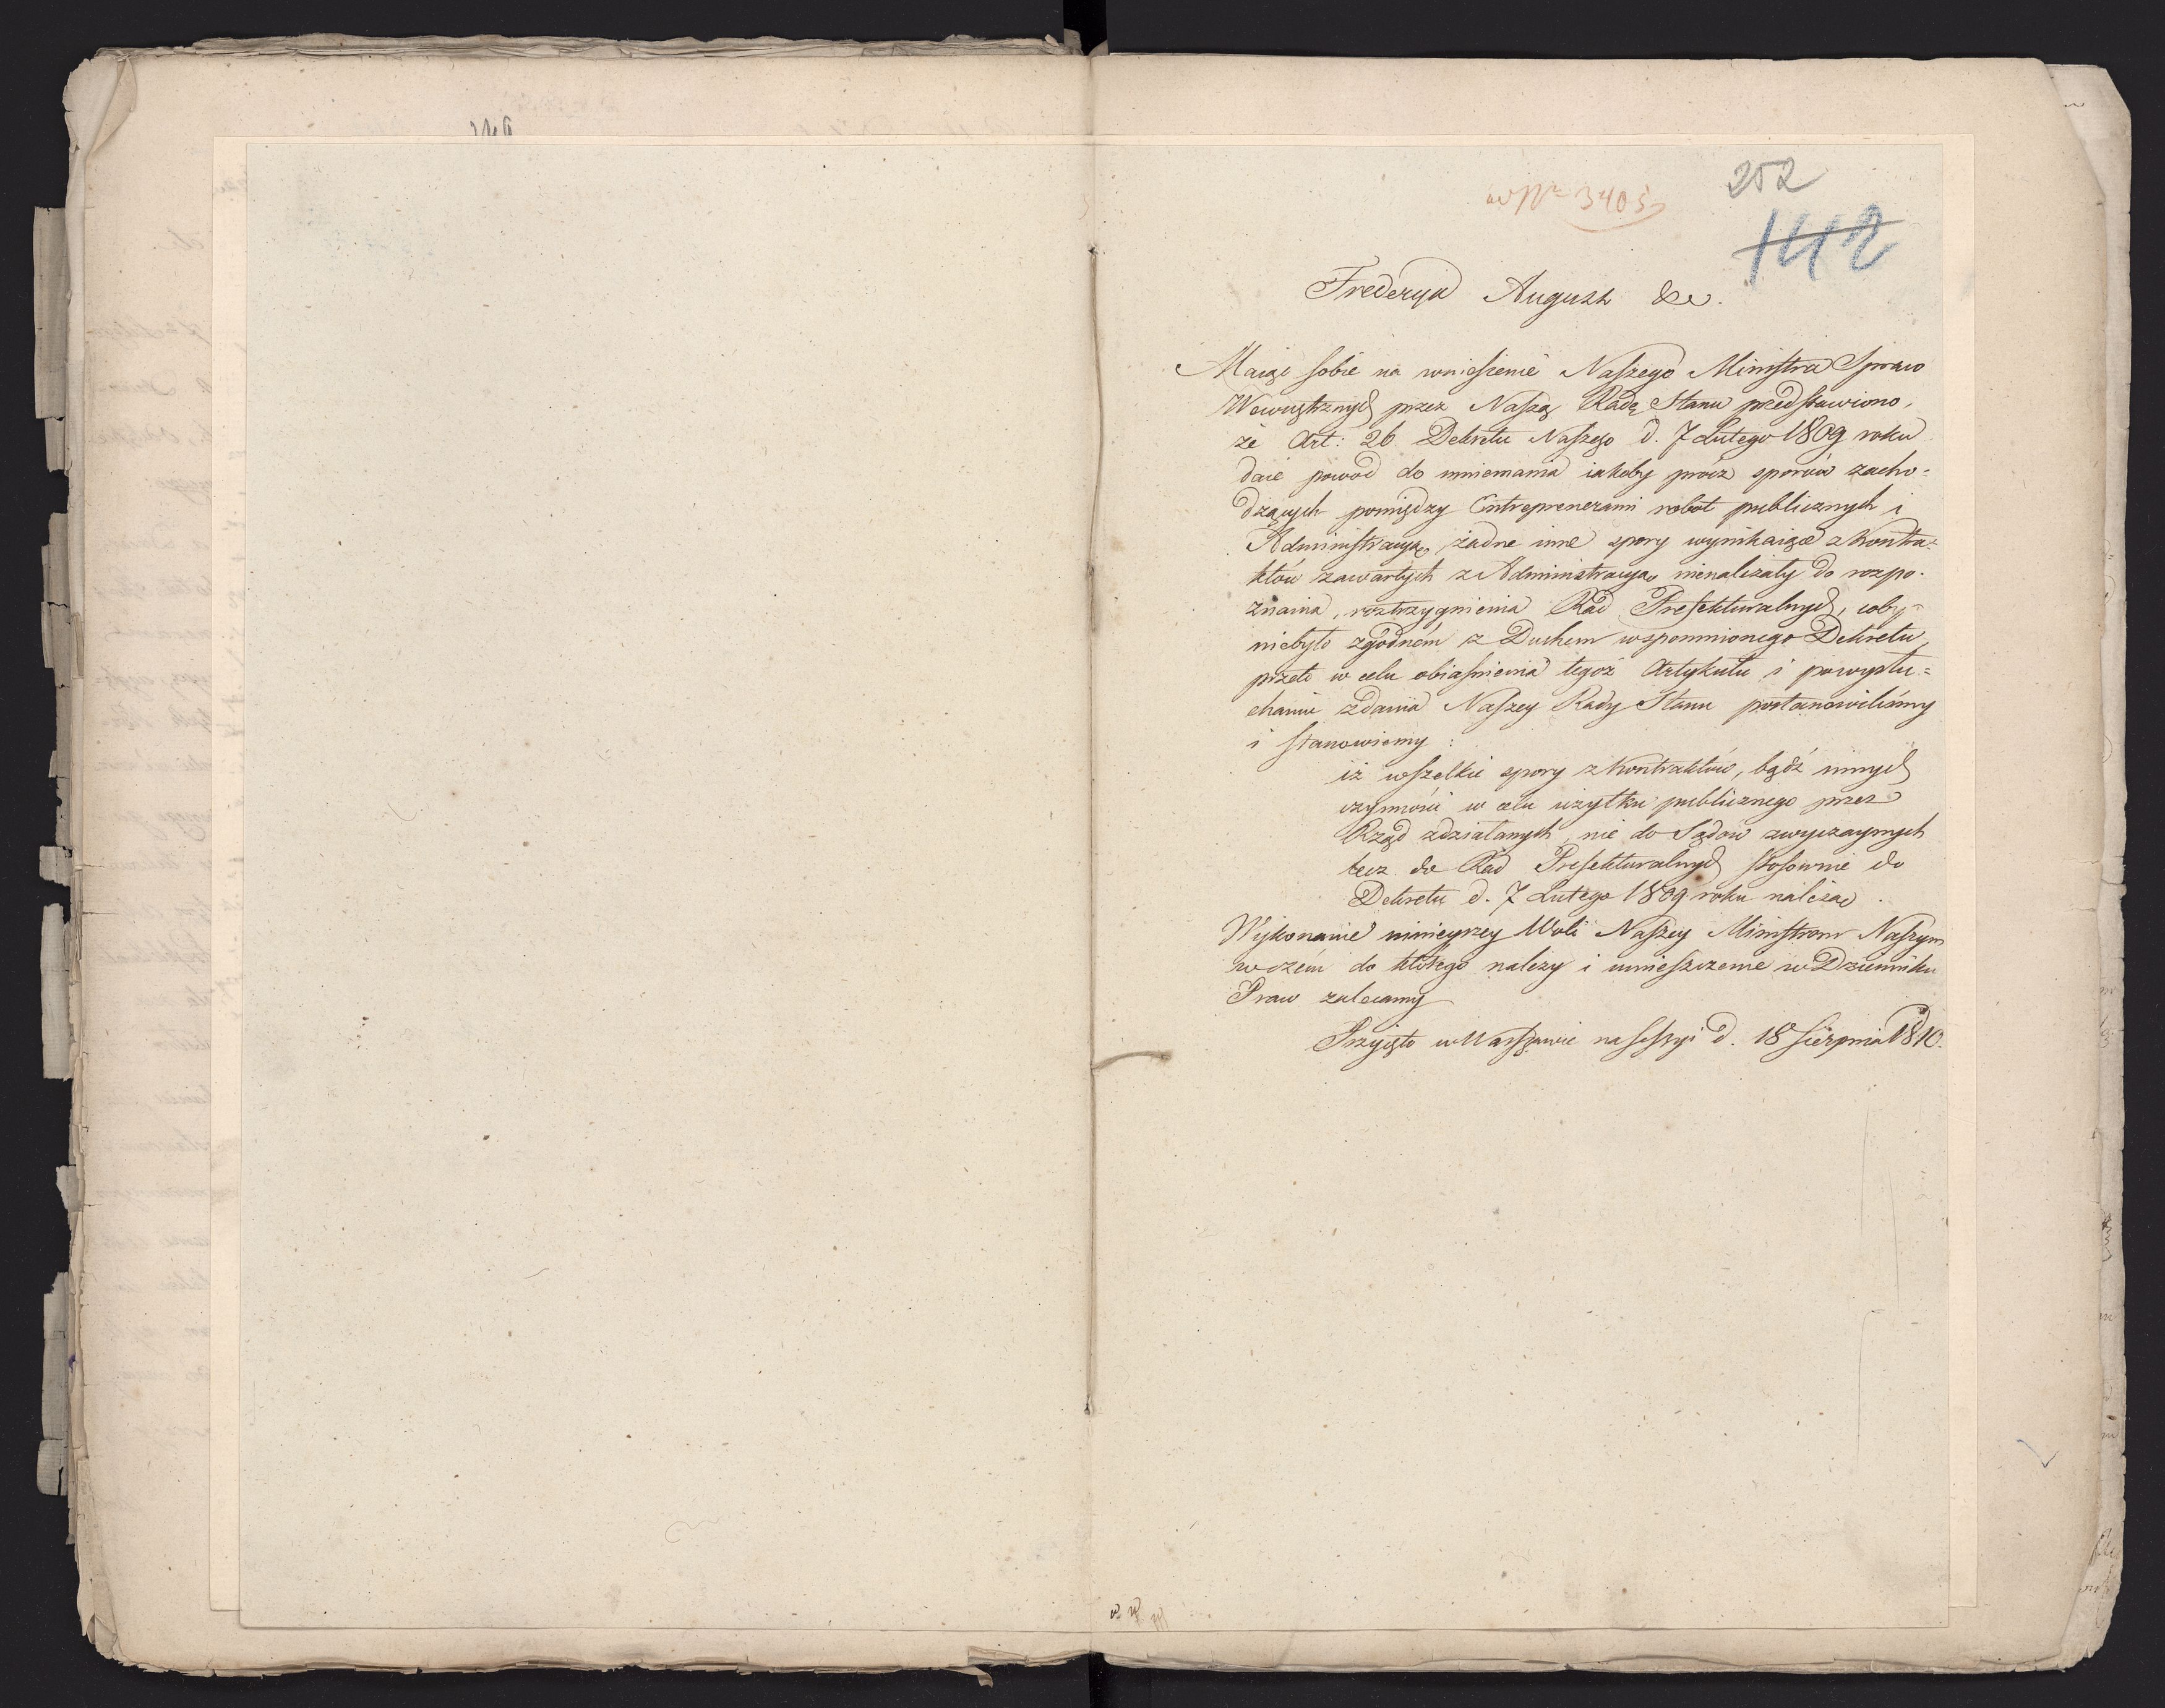 252
ad Nº 3405
142
Frederyk August &c.
Maiąc sobie na wniesienie Naszego Ministra Spraw
Wewnętrznych przez Naszą Radę Stanu przedstawiono,
że Art: 26 Dekretu Naszego d. 7 Lutego 1809 roku
daie powód do mniemania iakoby prócz sporów zacho=
dzących pomiędzy Entreprenerami robot publicznych i
Administracyą, żadne inne spory wynikaiące z kontra=
któw zawartych z Administracyą nienależały do rozpo-
znania, roztrzygnienia Rad Prefekturalnych, coby
niebyło zgodném z Duchem wspomnionego Dekretu,
przeto w celu obiaśnienia tegoż Artykułu i powysłu=
chaniu zdania Naszey Rady Stanu postanowiliśmy
i stanowiemy:
iż wszelkie spory z kontraktów, bądź innych
czynności w celu użytku publicznego przez
Rząd zdziałanych, nie do Sądów zwyczaynych
lecz do Rad Prefekturalnych stosownie do
Dekretu d. 7 Lutego 1809 roku należą.
Wykonanie ninieyszey Woli Naszey Ministrom Naszym
w czém do którego należy i umieszczenie w Dzienniku
Praw zalecamy
Przyięto w Warszawie na Sessyi d. 18 Sierpnia 1810.